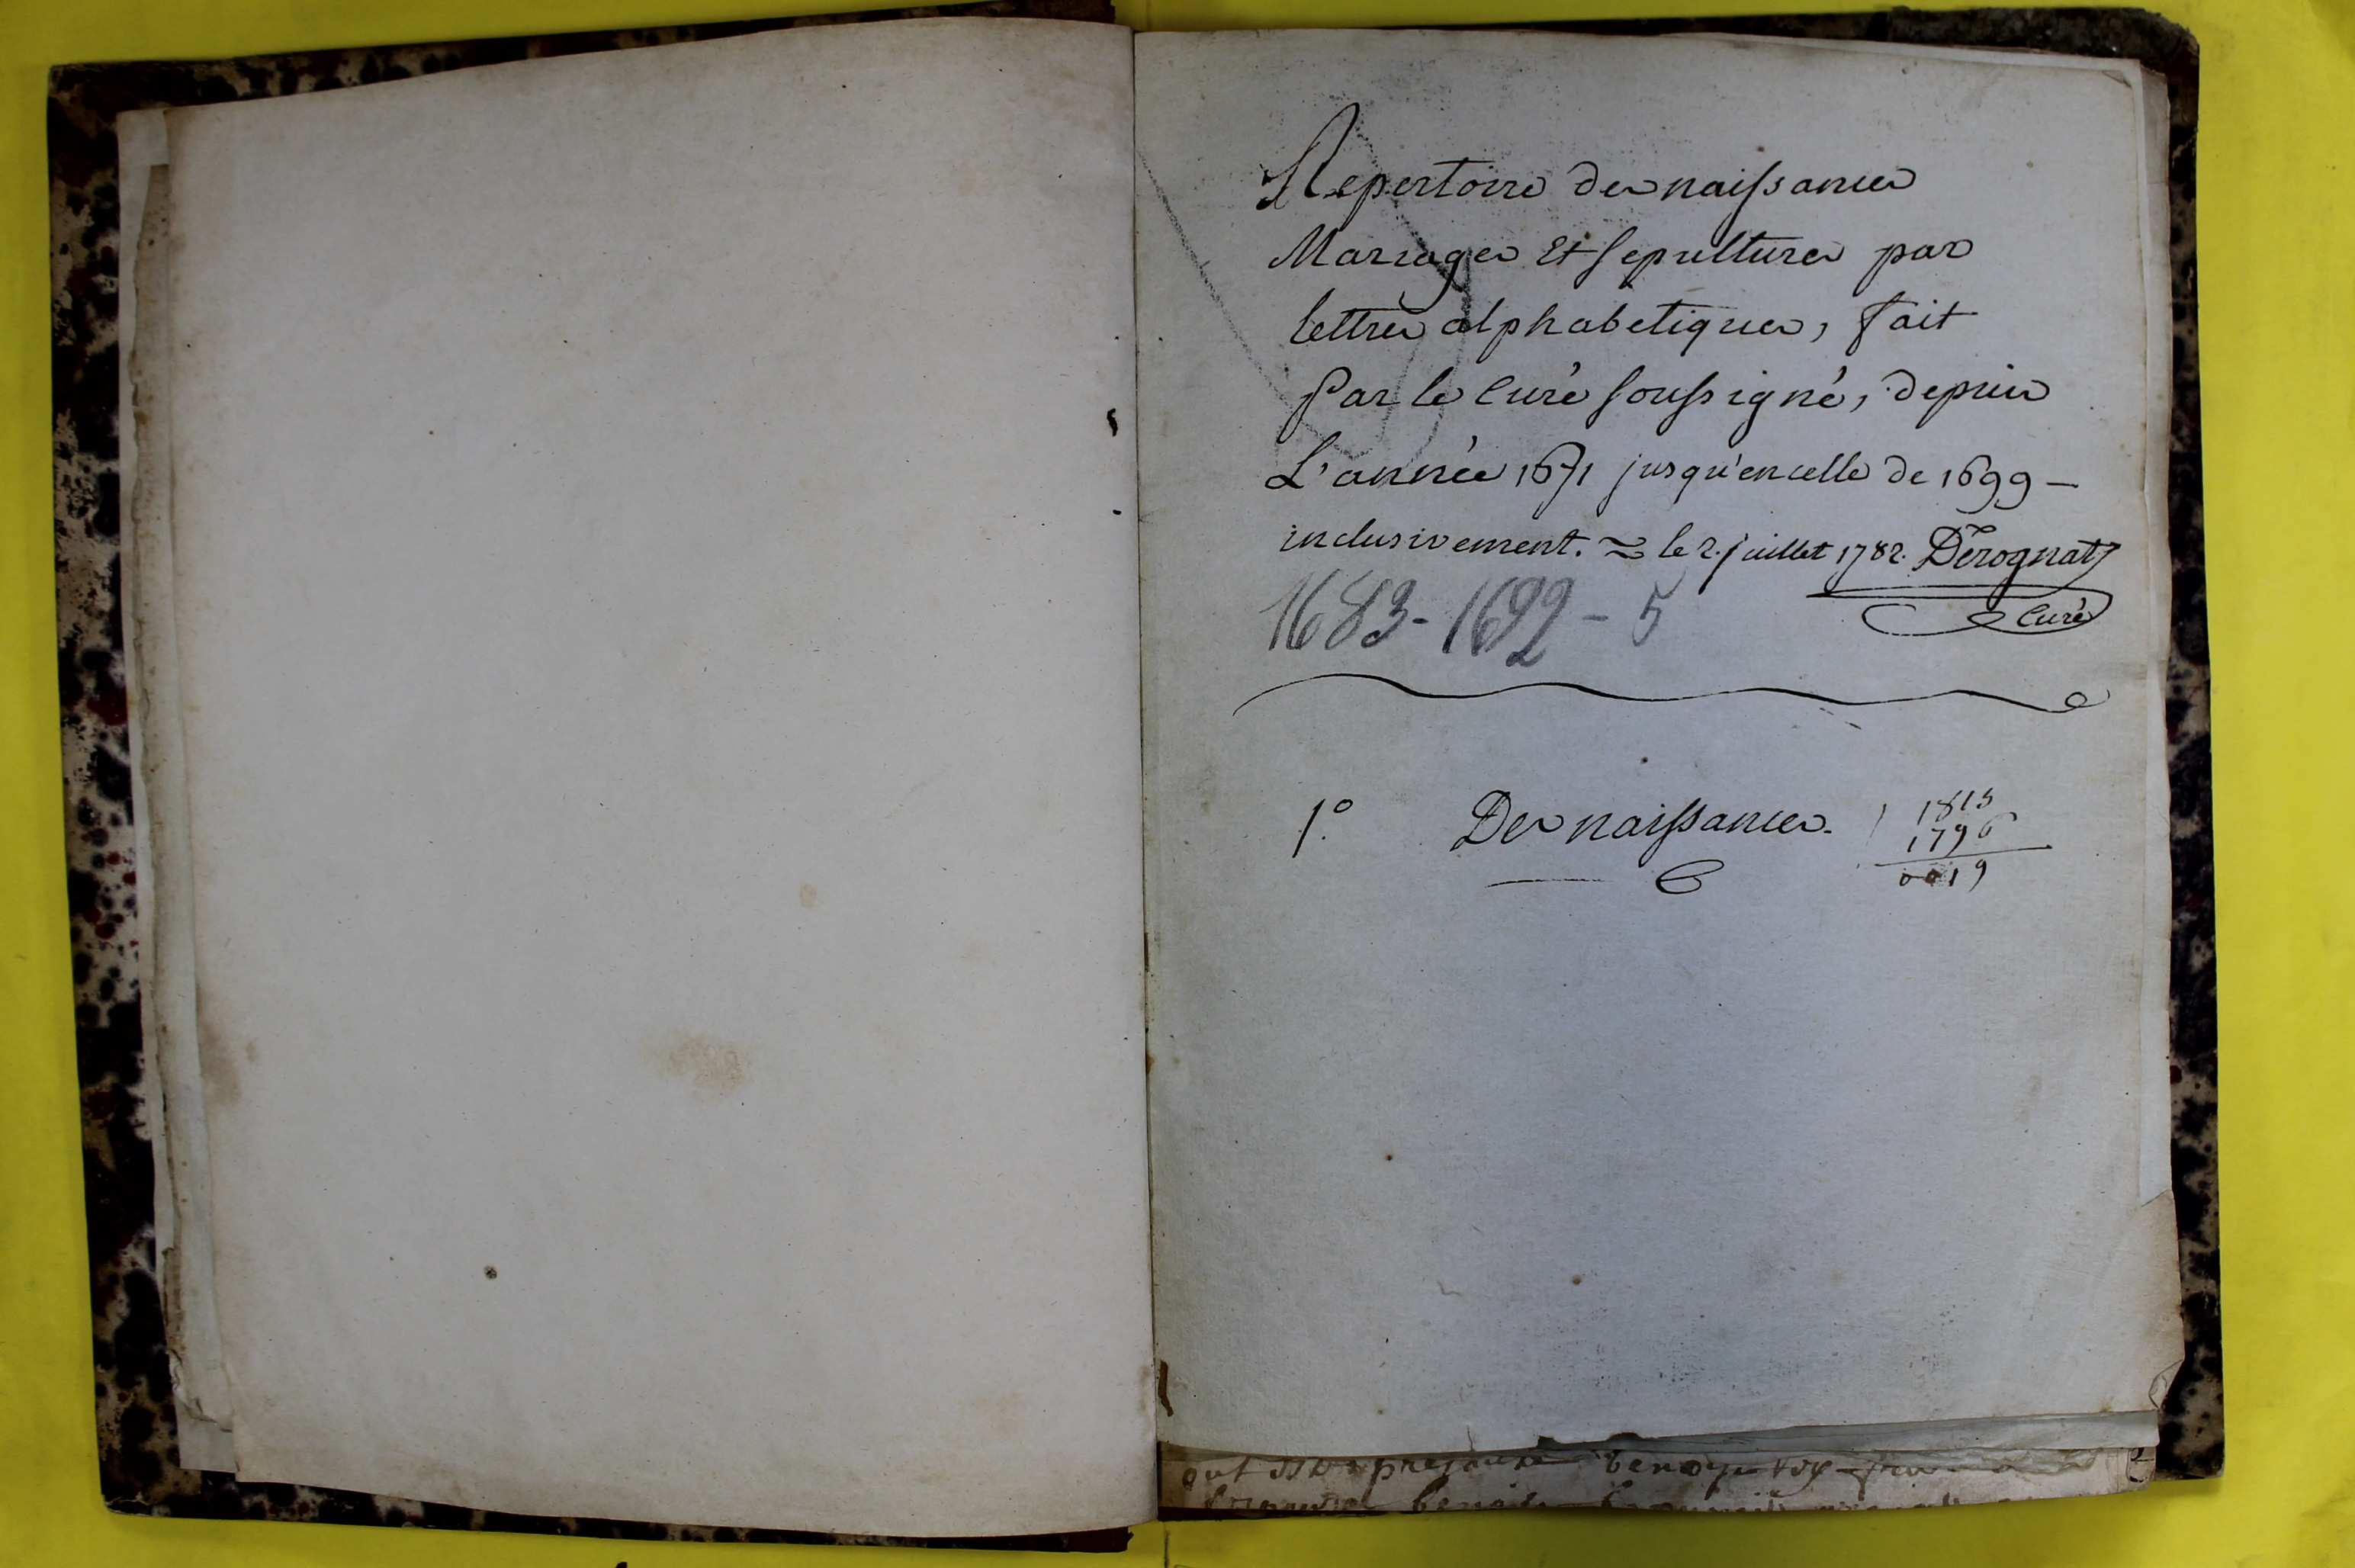 Repertoire des naissances
Mariages Et sepultures par
lettres alphabetiques, fait
Par le Curé soussigné, depuis
L'année 1671 jusqu'en celle de 1699 -
inclusivement. ≈ le 2. juillet 1782. Derognat
Curé
1683 - 1692 - 5
1.° Des naissances.
1815
1796
0019